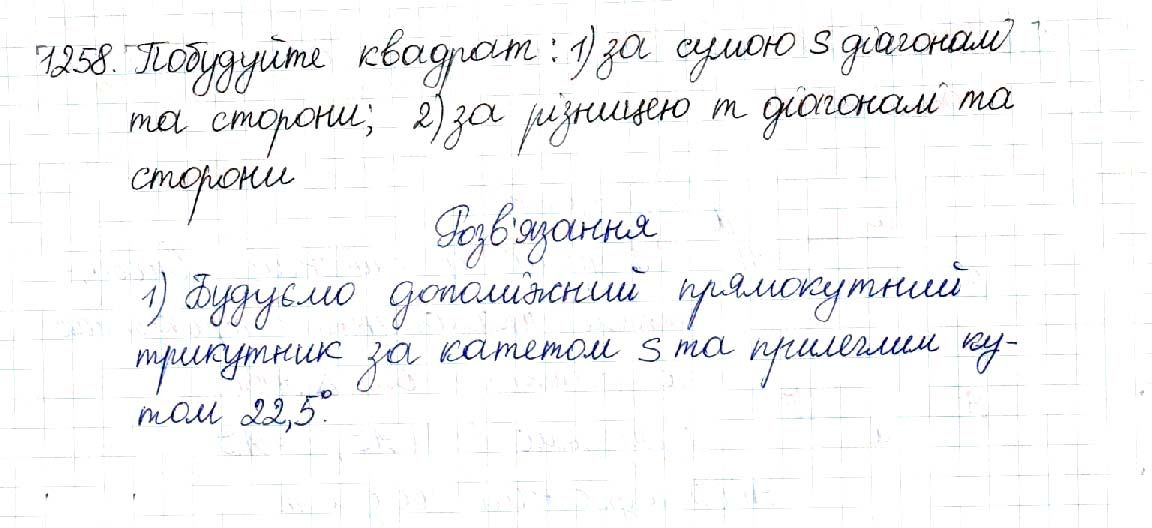 1258. Побудуйте квадрат: 1) за сумою s діагоналі
та сторони; 2) за різницею m діагоналі та
сторони
Розв'язання
1) Будуємо допоміжний прямокутний
трикутник за катетом s та прилеглим ку-
том 22,5°.